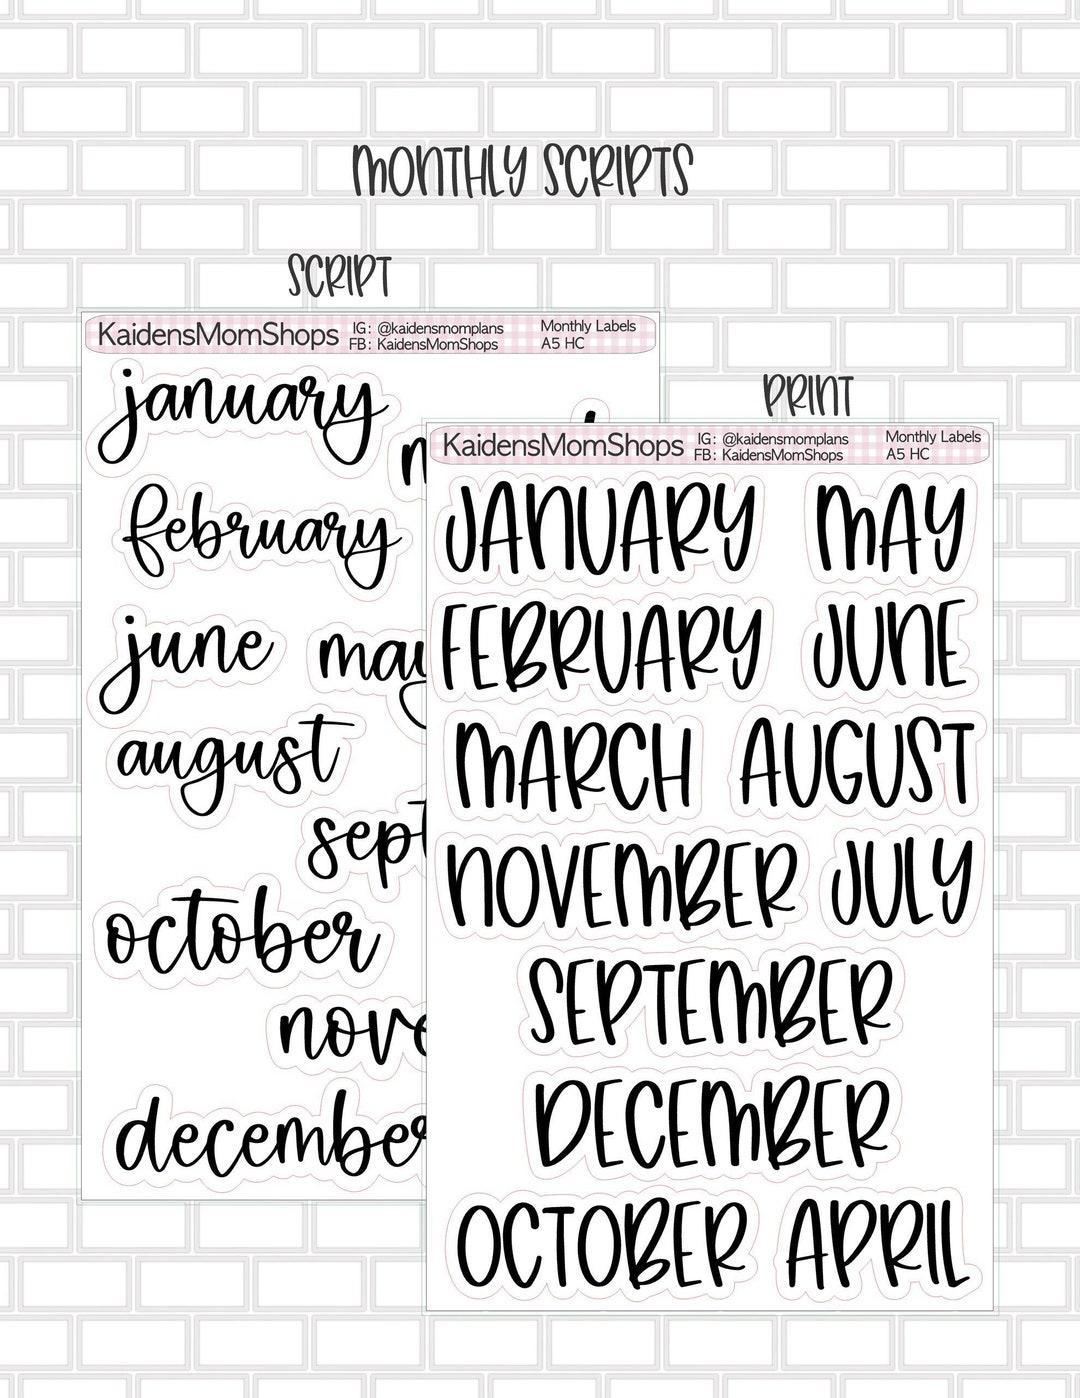 MONTHLY SCRIPTS
SCRIPT
KaidensMomShops
IG: @kaidensmomplans
FB: KaidensMomShops
Monthly Labels
A5 HC
january
february
june
august
october
PRINT
KaidensMomShops
IG: @kaidensmomplans
FB: KaidensMomShops
Monthly Labels
A5 HC
JANUARY MAY
FEBRUARY JUNE
MARCH AUGUST
NOVEMBER JULY
SEPTEMBER
DECEMBER
OCTOBER APRIL